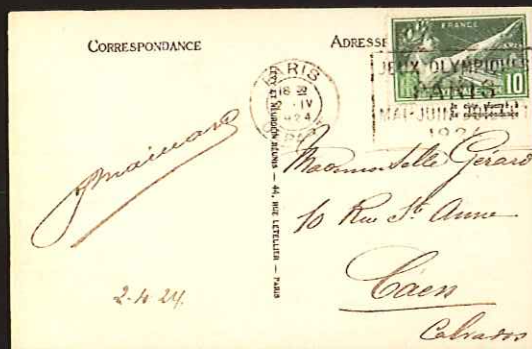 CORRESPONDANCE
ADRESSE
FRANCE
10
PARIS
18
2 - IV
24
JEUX OLYMPIQUES
PARIS
MAI-JUIN
1924
ET NEURDEIN RÉUNIS — 44, RUE LETELLIER — PARIS
2-4 24.
Mademoiselle Gérard
10 Rue St Anne
Caen
Calvados